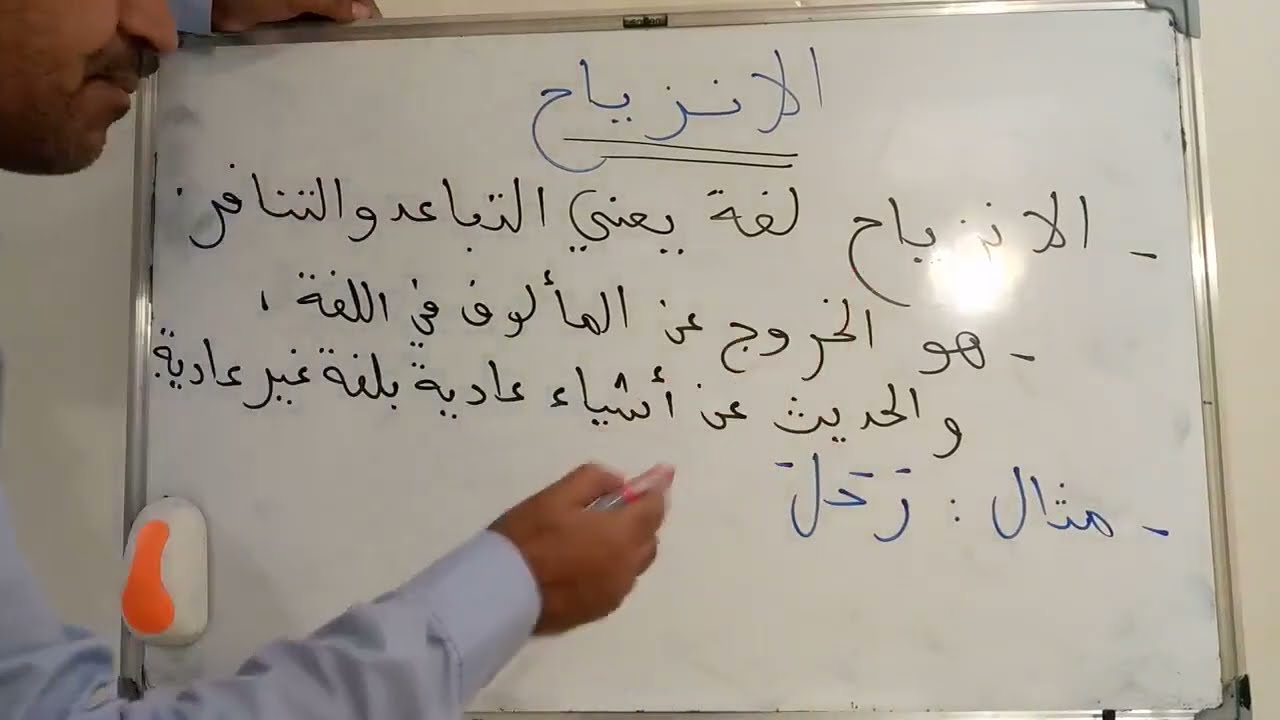 الانزياح
- الانزياح لغة يعني التباعد والتنافر.
- هو الخروج عن المألوف في اللغة،
والحديث عن أشياء عادية بلغة غير عادية.
- مثال : رَحَلَ